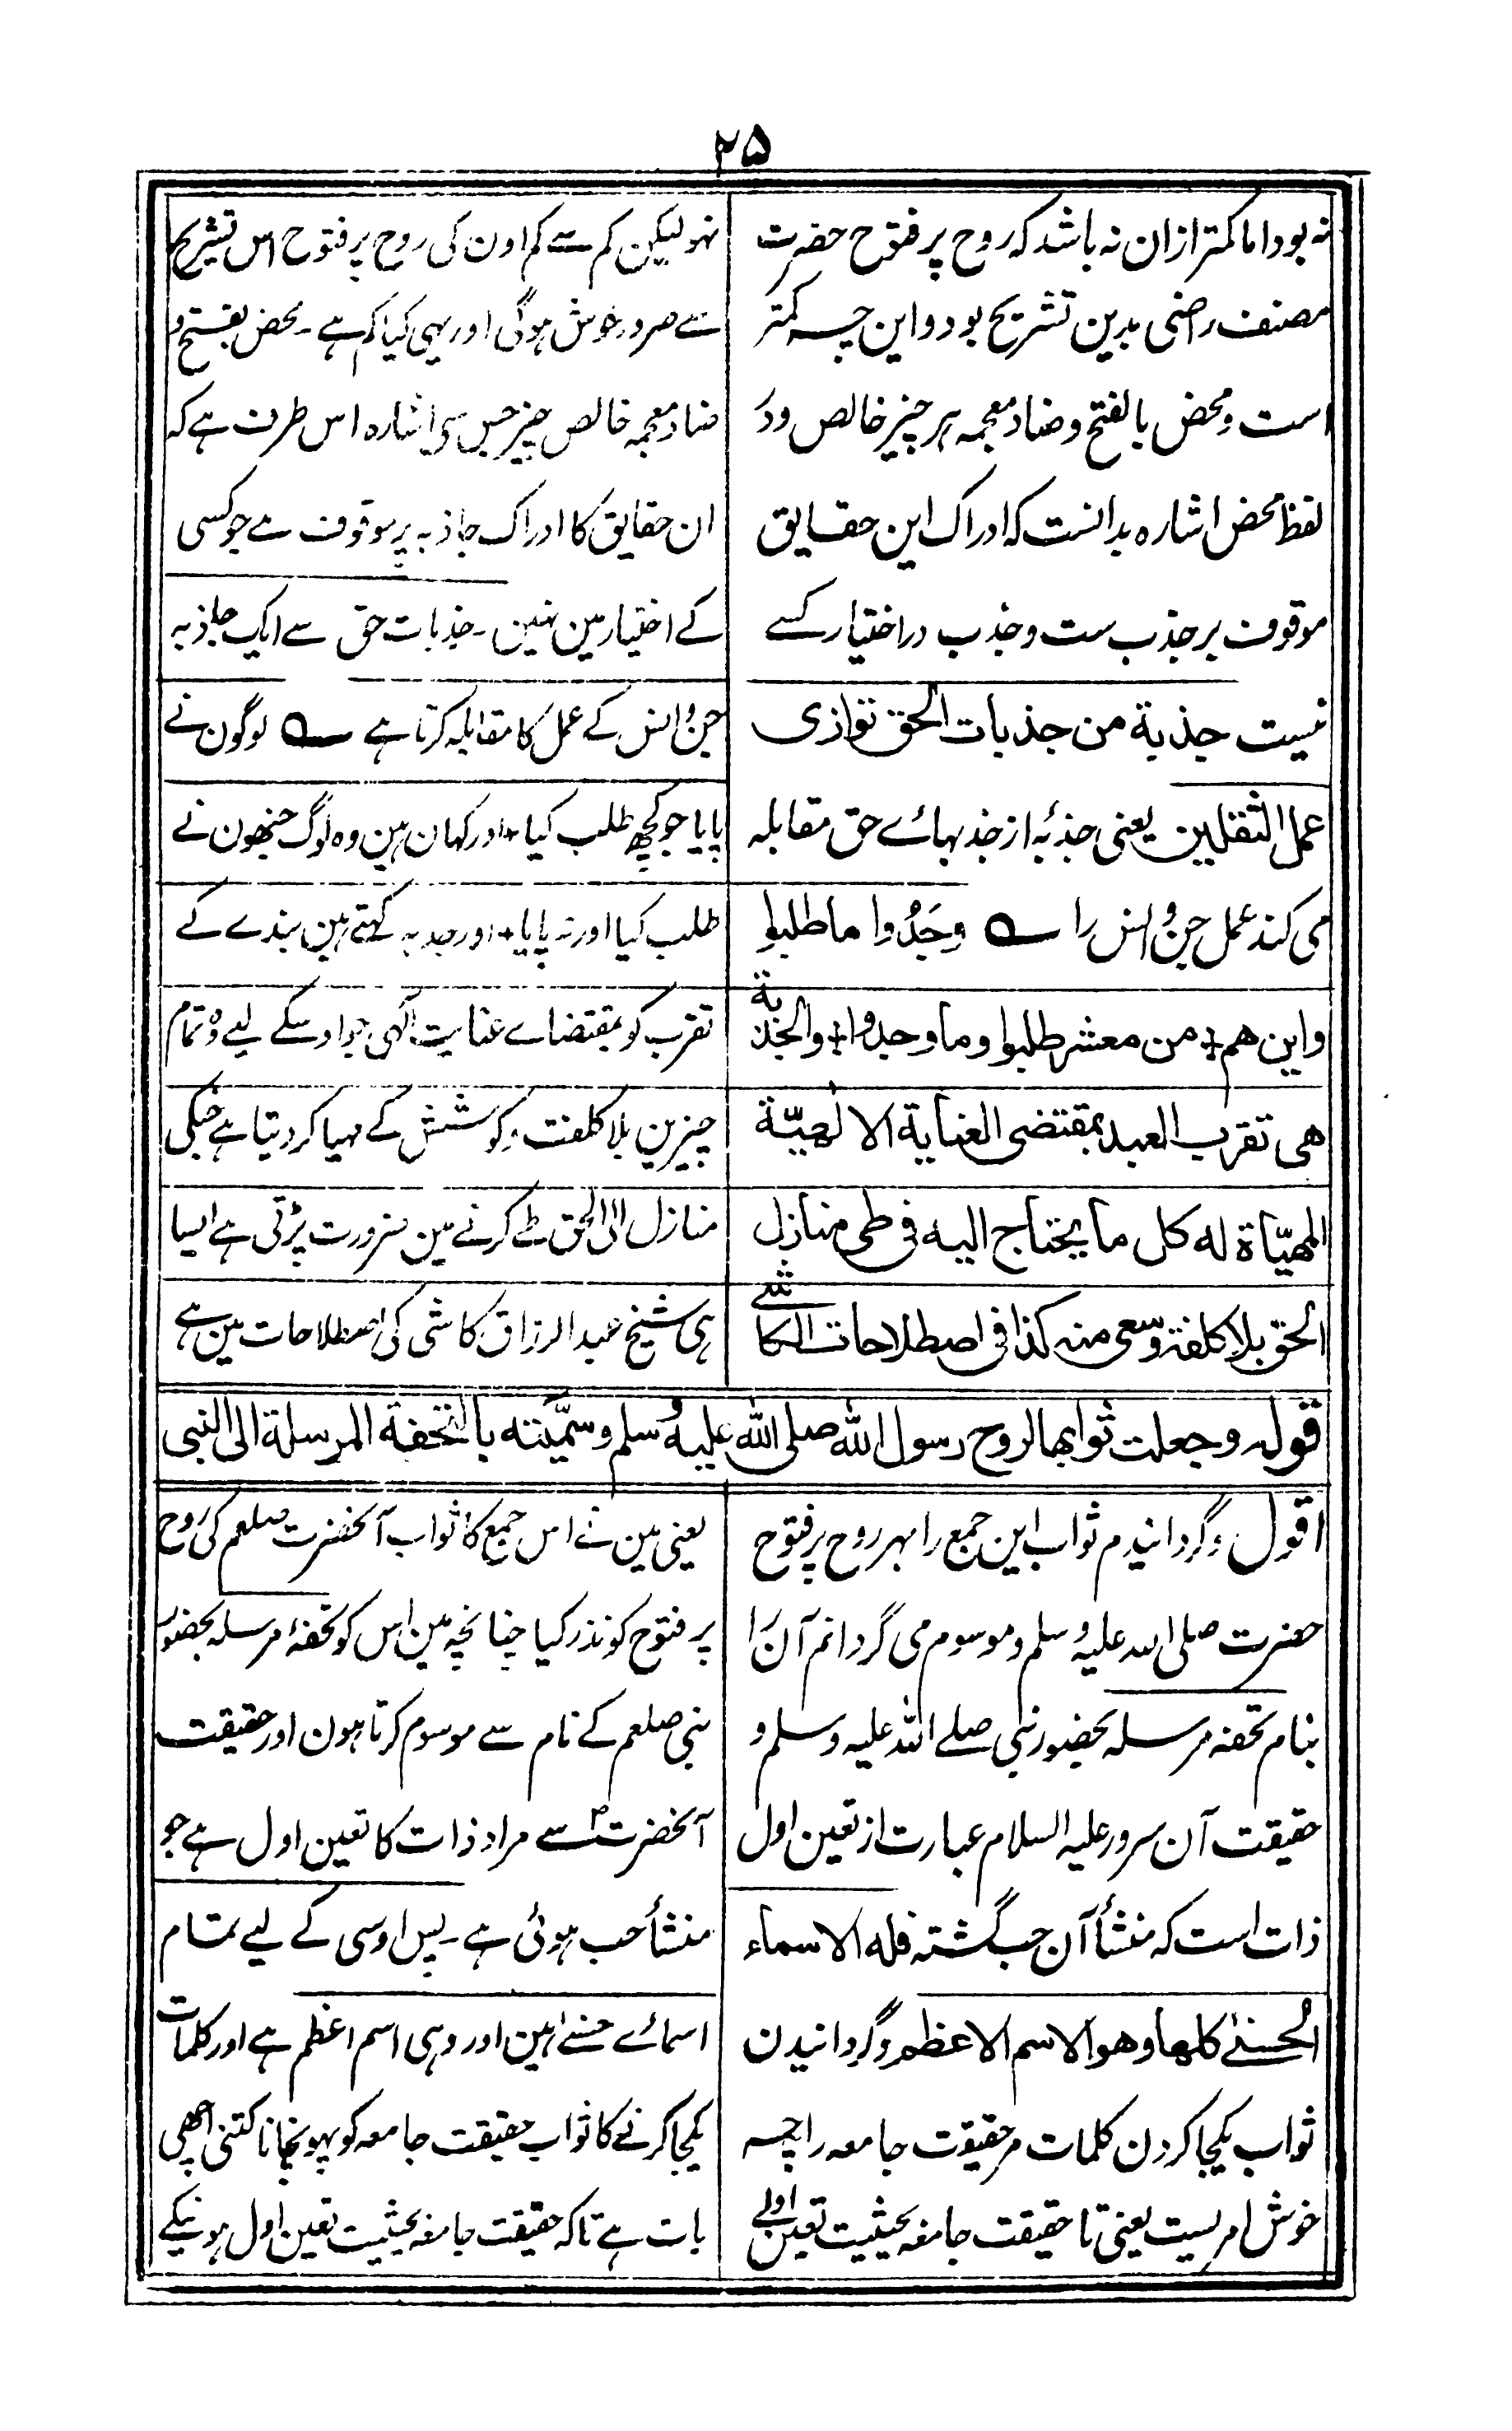 ۲۵
نہ بود اما کمتر ازان نہ باشد کہ روح پر فتوح حضرت
مصنف راضی بدین تشریح بود و این چہ کمتر
است و محض بالفتح و ضاد معجمہ ہر چیز خالص و در
لفظ محض اشارہ بدانست کہ ادراک این حقایق
موقوف بر جذب ست و جذب در اختیار کسے
نیست جذبة من جذبات الحق توازی
عمل الثقلین یعنی جذبۂ از جذبہائے حق مقابلہ
می کند عمل جن و انس را ؎ وَجَدُوا ما طلبوا
واین هم + من معشر طلبوا وما وجدوا + والجذبة
هی تقرب العبد بمقتضی العنایة الالهیّة
المهیّاة له کل ما یحتاج الیه فی طی منازل
الحق بلا کلفة وسعی منه کذا فی اصطلاحات الکاشے
نہو لیکن کم سے کم اون کی روح پر فتوح اس تشریح
سے ضرور خوش ہوگی اور یہی کیا کم ہے ۔ محض بفتح و
ضاد معجمہ خالص چیز جس سی اشارہ اس طرف ہے کہ
ان حقایق کا ادراک جاذبہ پر موقوف ہے جو کسی
کے اختیار مین نہین ۔ جذبات حق سے ایک جاذبہ
جن و انس کے عمل کا مقابلہ کرتا ہے ؎ لوگون نے
پایا جو کچھ طلب کیا + اور کہان ہین وہ لوگ جنھون نے
طلب کیا اور نہ پایا + اور جذبہ کہتے ہین بندے کے
تقرب کو بمقتضاے عنایت الٰہی جو اوسکے لیے وہ تمام
چیزین بلا کلفت و کوشش کے مہیا کر دیتا ہے جنکی
منازل الی الحق طے کرنے مین ضرورت پڑتی ہے ایسا
ہی شیخ عبدالرزاق کاشی کی اصطلاحات مین ہے
قوله وجعلت ثوابها لروح رسول الله صلی الله علیه وسلم وسمّیته بالتحفة المرسلة الی النبی
اقول و گردانیدم ثواب این جمع را بہر روح پر فتوح
حضرت صلی اللہ علیہ و سلم و موسوم می گردانم آن را
بنام تحفہ مرسلہ بحضور نبی صلے اللہ علیہ وسلم و
حقیقت آن سرور علیہ السلام عبارت از تعین اول
ذات است کہ منشأ آن حب گشتہ فله الاسماء
الحسنےٰ کلها وهو الاسم الاعظم و گردانیدن
ثواب یکجا کردن کلمات مر حقیقت جامعہ را چہ
خوش امریست یعنی تا حقیقت جامعہ بحیثیت تعین اولے
یعنی مین نے اس جمع کا ثواب آنحضرت صلعم کی روح
پر فتوح کو نذر کیا چنانچہ مین اس کو تحفۂ مرسلہ بحضور
نبی صلعم کے نام سے موسوم کرتا ہون اور حقیقت
آنحضرتؐ سے مراد ذات کا تعین اول ہے جو
منشأ حب ہوئی ہے ۔ پس اوسی کے لیے تمام
اسمائے حسنےٰ ہین اور وہی اسم اعظم ہے اور کلمات
یکجا کرنے کا ثواب حقیقت جامعہ کو پہونچانا کتنی اچھی
بات ہے تاکہ حقیقت جامعہ بحیثیت تعین اول ہونیکے